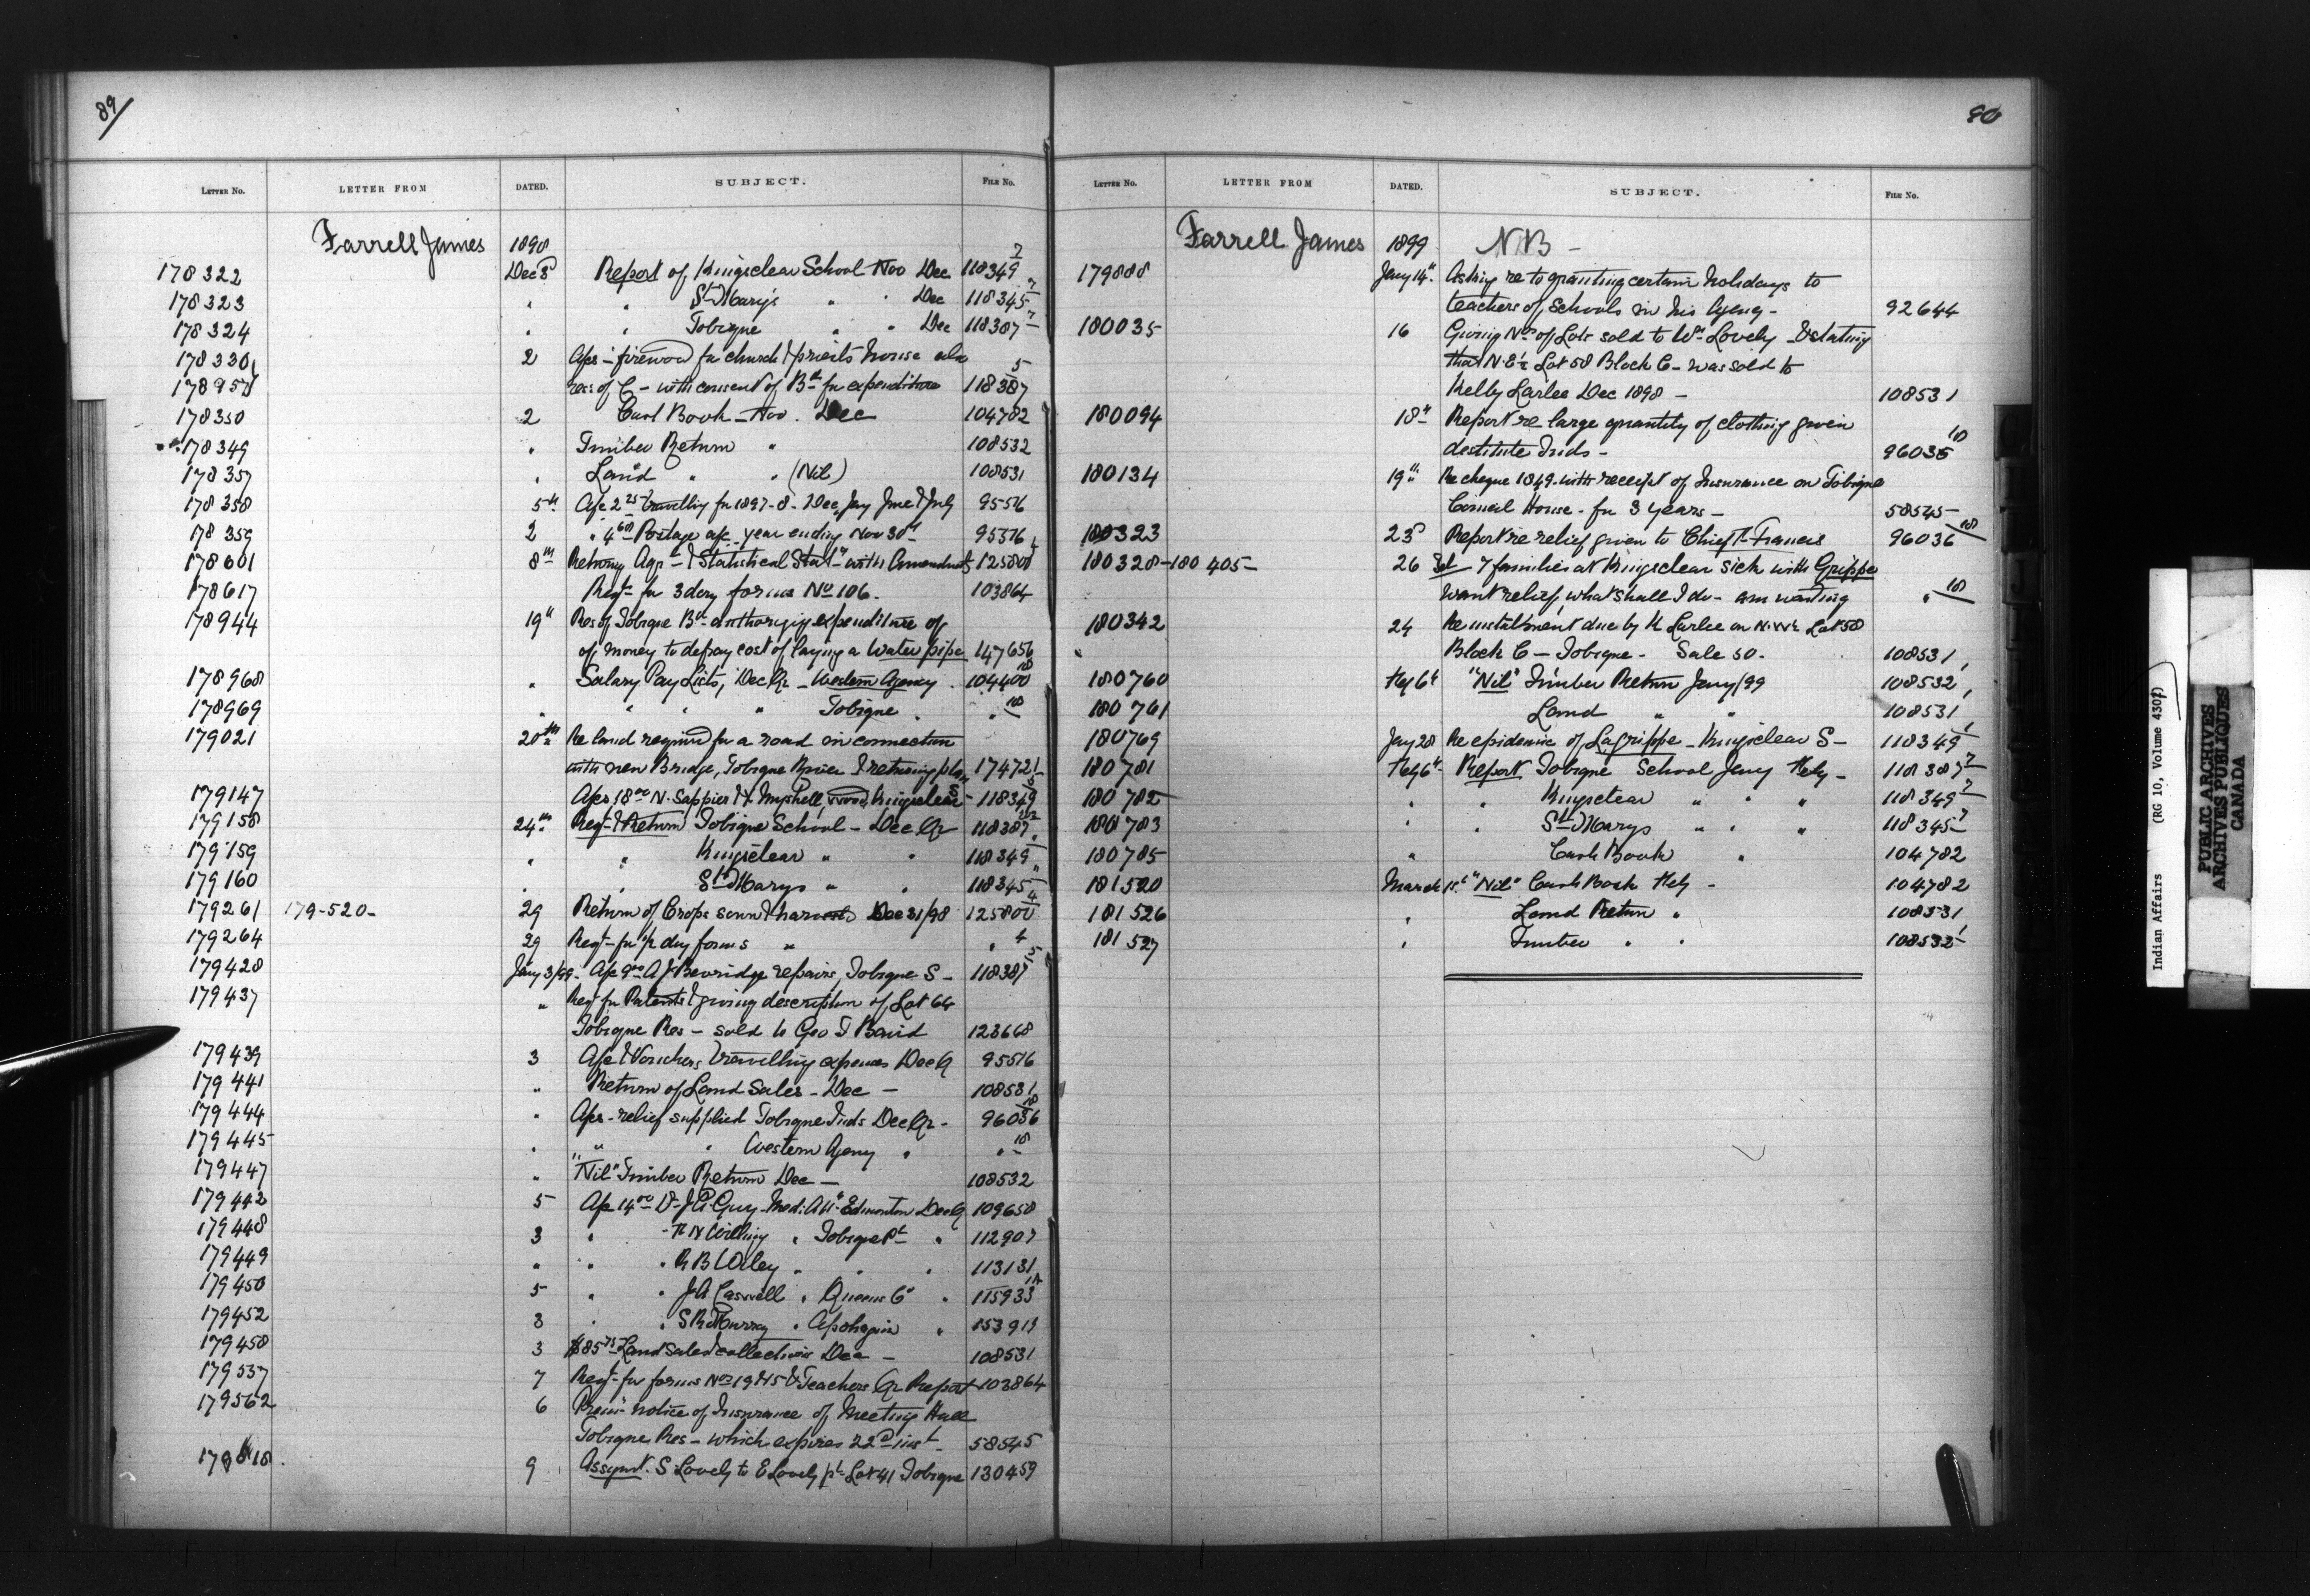 89
LETTER No. LETTER FROM DATED. SUBJECT. FILE No.
Farrell James 1898
178322 Dec 3 Report of Kingsclear School Nov Dec 118349 7
178323 " " St Mary's " " Dec 118345 7
178324 " " Tobique " " Dec 118387 7
178330 2 Aps - firewood for church & priests house also
178954 res: of C - with consent of Bd for expenditure 118387 5
178350 2 Cash Book - Nov. Dec 104782
178349 " Timber Return " 108532
178357 " Land " " (Nil) 108531
178358 5th Apc 2 25 travelling for 1897-8 - Dec, Jany June & July 95516
178359 2 " 4 60 Postage apc year ending Nov 30th 95516
178601 8th Returng Agr - & Statistical Stat - with Amendmts 125800
178617 Reqt for 3 doz forms No 106. 103864
178944 19" Res of Tobique Bd - authorizing expenditure of
of money to defray cost of laying a Water pipe 147656
178968 " Salary Pay Lists, Dec Qr - Western Agency 104400 10
178969 " " " " Tobique " " 10
179021 20th Re land required for a road in connection
with new Bridge, Tobique River & returning plan 174721
179147 Aps 18 00 N. Sappier & Myshell, wood, Kingsclear S 118349 5
179158 24th Reqt & Return Tobique School - Dec Qr 118387
179159 " " Kingsclear " " 118349
179160 " " St Marys " " 118345
179261 179-520- 29 Return of Crops sown & harvests Dec 31/98 125800 4
179264 29 Reqt for ½ doz forms " " 4
179428 Jany 3/99 - Apc 9 00 A J Beveridge repairs, Tobique S - 118387 5
179437 " Reqt for Patents & giving description of Lot 64
Tobique Res - sold to Geo T Baird 123668
179439 3 Apc & Vouchers travelling expenses Dec Q 95516
179441 " Return of Land Sales - Dec - 108531
179444 " Aps - relief supplied Tobique Inds Dec Qr - 96036 10
179445 " " " Western Agency " " 10
179447 " "Nil" Timber Return Dec - 108532
179442 5 Apc 14 00 Dr J A Guy - Med: Att Edmonton Dec Q 109658
179448 3 " " Tobique Pt " 112907
179449 " " " R B Wiley " " " 113131
179450 5 " " J A Caswell " Queens Co " 115933
179452 3 " " S R Murray " Apohaquin " 153913
179458 3 $85 75 Land Sales & collections Dec - 108531
179537 7 Reqt for forms Nos 19 & 15 & Teachers Qr Report 103864
179562 6 Prem notice of Insurance of Meeting Hall
Tobique Res - which expires 22d inst - 58545
9 Assgnmt. S. Lovely to E Lovely pt Lot 41 Tobique 130459
LETTER No. LETTER FROM DATED. SUBJECT. FILE No.
Farrell James 1899 N B -
179888 Jany 14" Asking re to granting certain holidays to
teachers of schools in his Agency - 92644
180035 16 Giving Nos of Lots sold to Wm Lovely - & stating
that N.E ½ Lot 58 Block C - was sold to
Kelly Larlee Dec 1898 - 108531
180094 18" Report re large quantity of clothing given
destitute Inds - 96036 10
180134 19" Re cheque 1849 - with receipt of Insurance on Tobique
Council House - for 3 years - 58545
180323 23d Report re relief given to Chief T. Francis 96036 10
180328 - 180405 - 26 Tel - 7 families at Kingsclear sick with Grippe
want relief, what shall I do - am waiting " 10
180342 24 Re instalment due by K Larlee on N.W½ Lot 58
Block C - Tobique - Sale 50 - 108531
180760 Feby 6" "Nil" Timber Return Jany/99 108532
180761 Land " " 108531
180769 Jany 28 Re epidemic of Lagrippe - Kingsclear S - 118349
180781 Feby 6" - Report Tobique School Jany Feby - 118387 7
180782 " " Kingsclear " " " 118349 7
180783 " " St Marys " " " 118345 7
180785 " Cash Book " 104782
181520 March 1st "Nil" Cash Book Feby - 104782
181526 " Land Return " 108531
181527 " Timber " " 108532
Indian Affairs (RG 10, Volume 4307)
PUBLIC ARCHIVES
ARCHIVES PUBLIQUES
CANADA